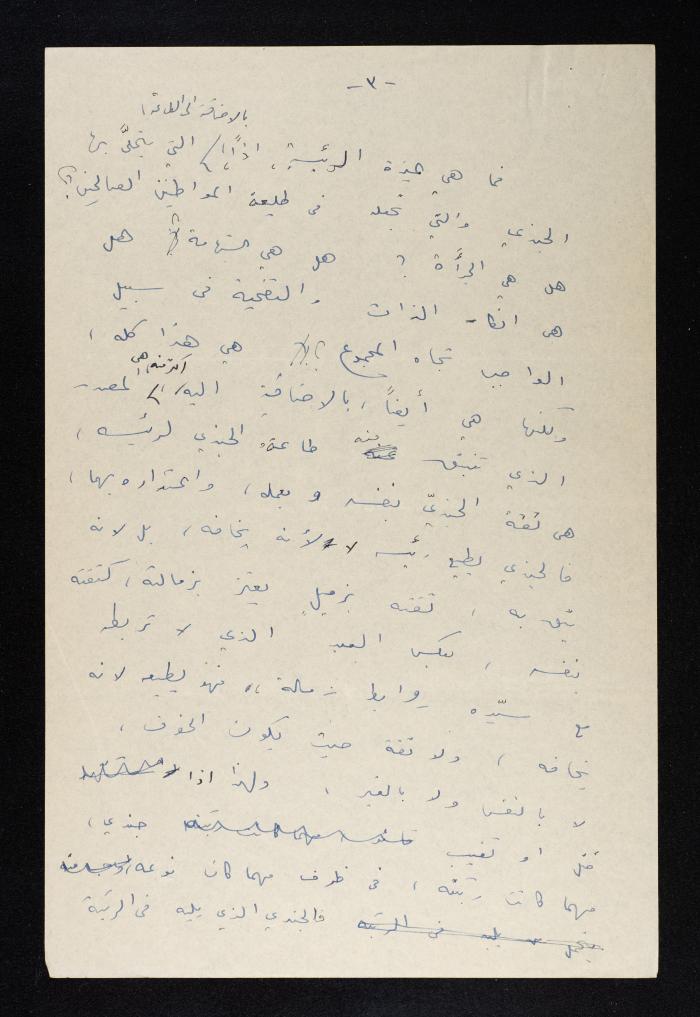 - ٣ -
بالاضافة الى الطاعة،
فما هي الميزة الرئيسية، اذاً، التي يتحلَّى بها
الجندي والتي تجعله في طليعة المواطنين الصالحين؟
هل هي الجرأة؟ هل هي الشهامة؟ هل
هي انكار الذات والتضحية في سبيل
الواجب تجاه المجموع؟ هي هذا كله،
ولكنها هي أيضاً، بالاضافة اليه، اكثر منه، هي المصدر
الذي تنبثق منه طاعة الجندي لرئيسه،
هي ثقة الجنديّ بنفسه وبعمله، واعتداده بهما،
فالجندي يطيع رئيسه لا لأنه يخافه، بل لانه
يثق به، ثقته بزميل يعتز بزمالته، كثقته
بنفسه، بعكس العبد الذي لا تربطه
مع سيّده روابط زمالة، فهو يطيعه لانه
يخافه، ولا ثقة حيث يكون الخوف،
لا بالنفس ولا بالغير، ولهذا اذا
قتل او تغيب جندي،
مهما كانت رتبته، في ظرف مهما كان نوعه،
فالجندي الذي يليه في الرتبة